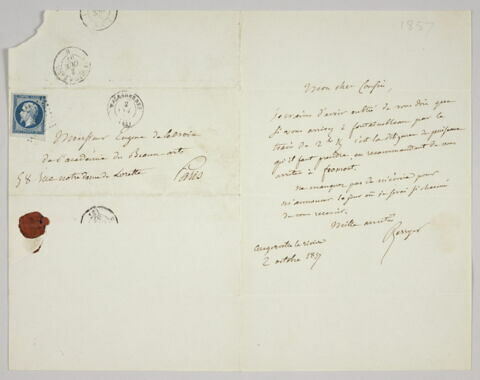 1857
Mon cher Cousin,
J'ai oublié de vous dire que
si vous arrivez à fontainebleau par la
train de 2h ½ c'est la diligence de
qu'il faut prendre, en recommandant de vous
arrêter à fromont.
ne manquez pas de m'écrire pour
m'annoncer le jour où je serai si charmé
de vous recevoir.
Mille amitiés
Berryer
augerville la rivière
2 octobre 1857
Monsieur Eugène delacroix
de l'académie des Beaux-arts
58 Rue notre dame de Lorette
Paris